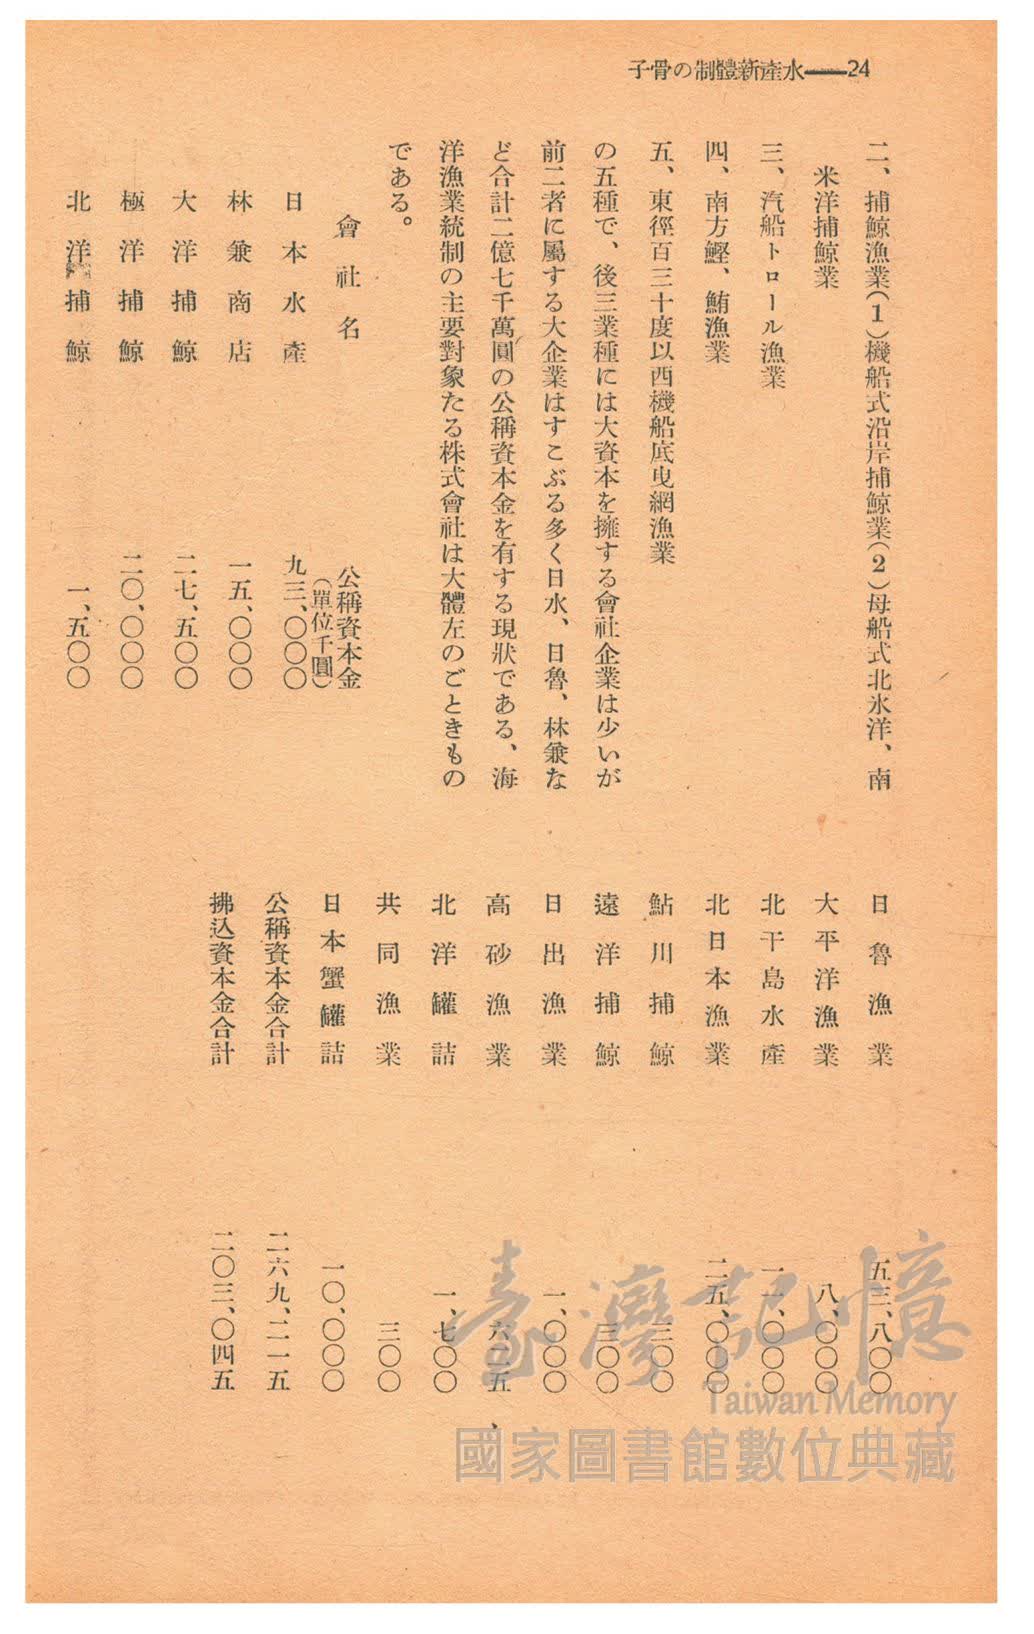 子骨の制體新產水——24
二、捕鯨漁業(1)機船式沿岸捕鯨業(2)母船式北氷洋、南
米洋捕鯨業
三、汽船トロール漁業
四、南方鰹、鮪漁業
五、東徑百三十度以西機船底曳網漁業
の五種で、後三業種には大資本を擁する會社企業は少いが
前二者に屬する大企業はすこぶる多く日水、日魯、林兼な
ど合計二億七千萬圓の公稱資本金を有する現狀である、海
洋漁業統制の主要對象たる株式會社は大體左のごときもの
である。
會社名 公稱資本金(單位千圓)
日本水產 九三、〇〇〇
林兼商店 一五、〇〇〇
大洋捕鯨 二七、五〇〇
極洋捕鯨 二〇、〇〇〇
北洋捕鯨 一、五〇〇
日魯漁業 五三、八〇〇
大平洋漁業 八、〇〇〇
北千島水產 一一、〇〇〇
北日本漁業 二五、〇〇〇
鮎川捕鯨 三〇〇
遠洋捕鯨 三〇〇
日出漁業 一、〇〇〇
高砂漁業 六二五、
北洋罐詰 一、七〇〇
共同漁業 三〇〇
日本蟹罐詰 一〇、〇〇〇
公稱資本金合計 二六九、二一五
拂込資本金合計 二〇三、〇四五
臺灣記憶
Taiwan Memory
國家圖書館數位典藏